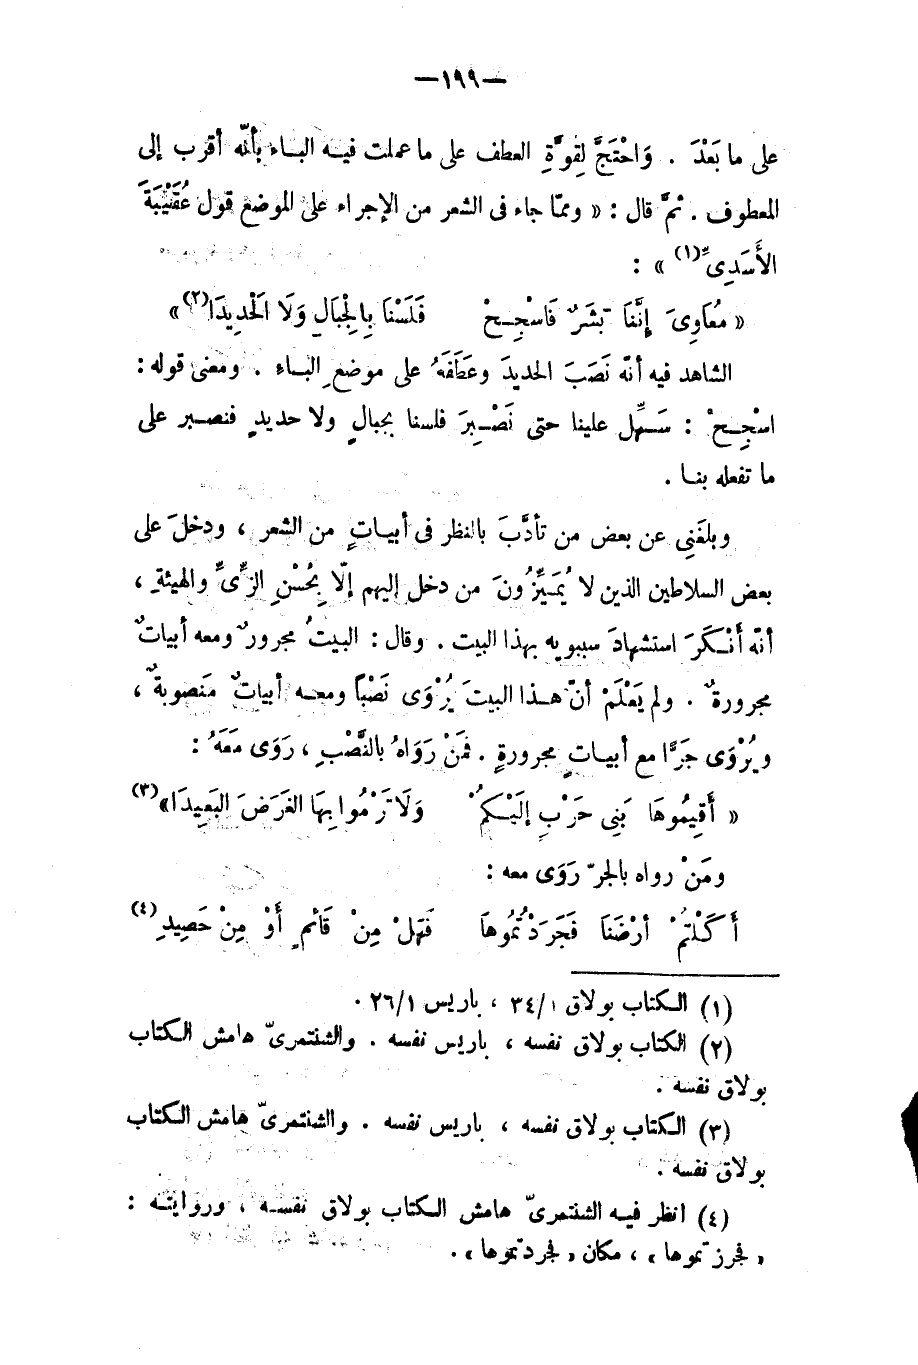 —١٩٩—
على ما بَعْدَ . وَاحْتَجَّ لِقوَّةِ العطف على ما عملت فيه الباء بأنّه أقرب إلى
المعطوف . ثمَّ قال : « وممّا جاء فى الشعر من الإجراء على الموضع قول عُقَيْبَةَ
الأَسَدِىِّ(١) » :
« مُعَاوِىَ إِنَّنَا بَشَرٌ فَاسْجِحْ فَلَسْنَا بِالْجِبَالِ وَلَا الْحَدِيدَا(٢) »
الشاهد فيه أنّه نَصَبَ الحديدَ وعَطَفَهُ على موضعِ الباءِ . ومعنى قوله :
اسْجِحْ : سَهِّل علينا حتى نَصْبِرَ فلسنا بجبالٍ ولا حديدٍ فنصبر على
ما تفعله بنا .
وبلغَنِى عن بعض من تأدَّبَ بالنظر فى أبياتٍ من الشعر ، ودخلَ على
بعض السلاطين الذين لا يُمَيِّزُونَ من دخل إليهم إلّا بِحُسْنِ الزِّىِّ والهيئةِ ،
أنّه أَنْكَرَ استشهادَ سيبويه بهذا البيت . وقال : البيتُ مجرورٌ ومعه أبياتٌ
مجرورةٌ . ولم يَعْلَمْ أنّ هذا البيتَ يُرْوَى نَصْبًا ومعه أبياتٌ مَنصوبةٌ ،
ويُرْوَى جَرًّا مع أبياتٍ مجرورةٍ . فمَنْ رَوَاهُ بالنَّصْبِ ، رَوَى مَعَهُ :
« أَقِيمُوهَا بَنِى حَرْبٍ إلَيْكمُْ وَلَا تَرْمُوا بِهَا الغَرَضَ البَعِيدَا »(٣)
ومَنْ رواه بالجرّ رَوَى معه :
أَكَلْتُمْ أرْضَنَا فَجَرَدْتُمُوهَا فَهَلْ مِنْ قَائمٍ أَوْ مِنْ حَصِيدِ(٤)
(١) الكتاب بولاق ٣٤/١ ، باريس ٢٦/١ .
(٢) الكتاب بولاق نفسه ، باريس نفسه . والشنتمرىّ هامش الكتاب
بولاق نفسه .
(٣) الكتاب بولاق نفسه ، باريس نفسه . والشنتمرىّ هامش الكتاب
بولاق نفسه .
(٤) انظر فيه الشنتمرىّ هامش الكتاب بولاق نفسه ، وروايته :
« فجرزتموها » ، مكان « فجردتموها » .